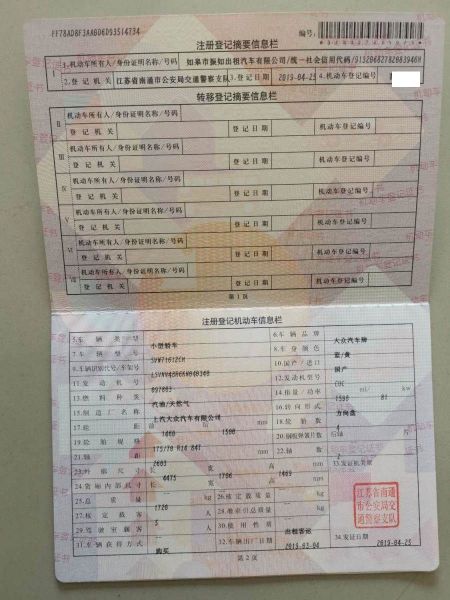 FF78AD8F3AAB6D93514734
注册登记摘要信息栏
编号:
I 1.机动车所有人/身份证明名称/号码 如皋市振如出租汽车有限公司/统一社会信用代码/
2.登记机关 江苏省南通市公安局交通警察支队 3.登记日期 2019-04-25 4.机动车登记编号
转移登记摘要信息栏
II 机动车所有人/身份证明名称/号码
登记机关 登记日期 机动车登记编号
III 机动车所有人/身份证明名称/号码
登记机关 登记日期 机动车登记编号
IV 机动车所有人/身份证明名称/号码
登记机关 登记日期 机动车登记编号
V 机动车所有人/身份证明名称/号码
登记机关 登记日期 机动车登记编号
VI 机动车所有人/身份证明名称/号码
登记机关 登记日期 机动车登记编号
VII 机动车所有人/身份证明名称/号码
登记机关 登记日期 机动车登记编号
第1页
注册登记机动车信息栏
5.车辆类型 小型轿车 6.车辆品牌 大众汽车牌
7.车辆型号 8.车身颜色 蓝/黄
9.车辆识别代号/车架号 10.国产/进口 国产
11.发动机号 12.发动机型号 CUC
13.燃料种类 汽油/天然气 14.排量/功率 1598 ml/ 81 kw
15.制造厂名称 上汽大众汽车有限公司 16.转向形式 方向盘
17.轮距 前 1460 后 1500 mm 18.轮胎数 4
19.轮胎规格 175/70 R14 84T 20.钢板弹簧片数
21.轴距 2603 mm 22.轴数 2
23.外廓尺寸 长 4475 宽 1706 高 1469 mm 33.发证机关章
24.货厢内部尺寸 长 宽 高 mm
25.总质量 1720 kg 26.核定载质量 kg
27.核定载客 5 人 28.准牵引总质量 kg
29.驾驶室载客 人 30.使用性质 出租客运
31.车辆获得方式 购买 32.车辆出厂日期 2019-03-04 34.发证日期 2019-04-25
江苏省南通
市公安局交
通警察支队
第2页